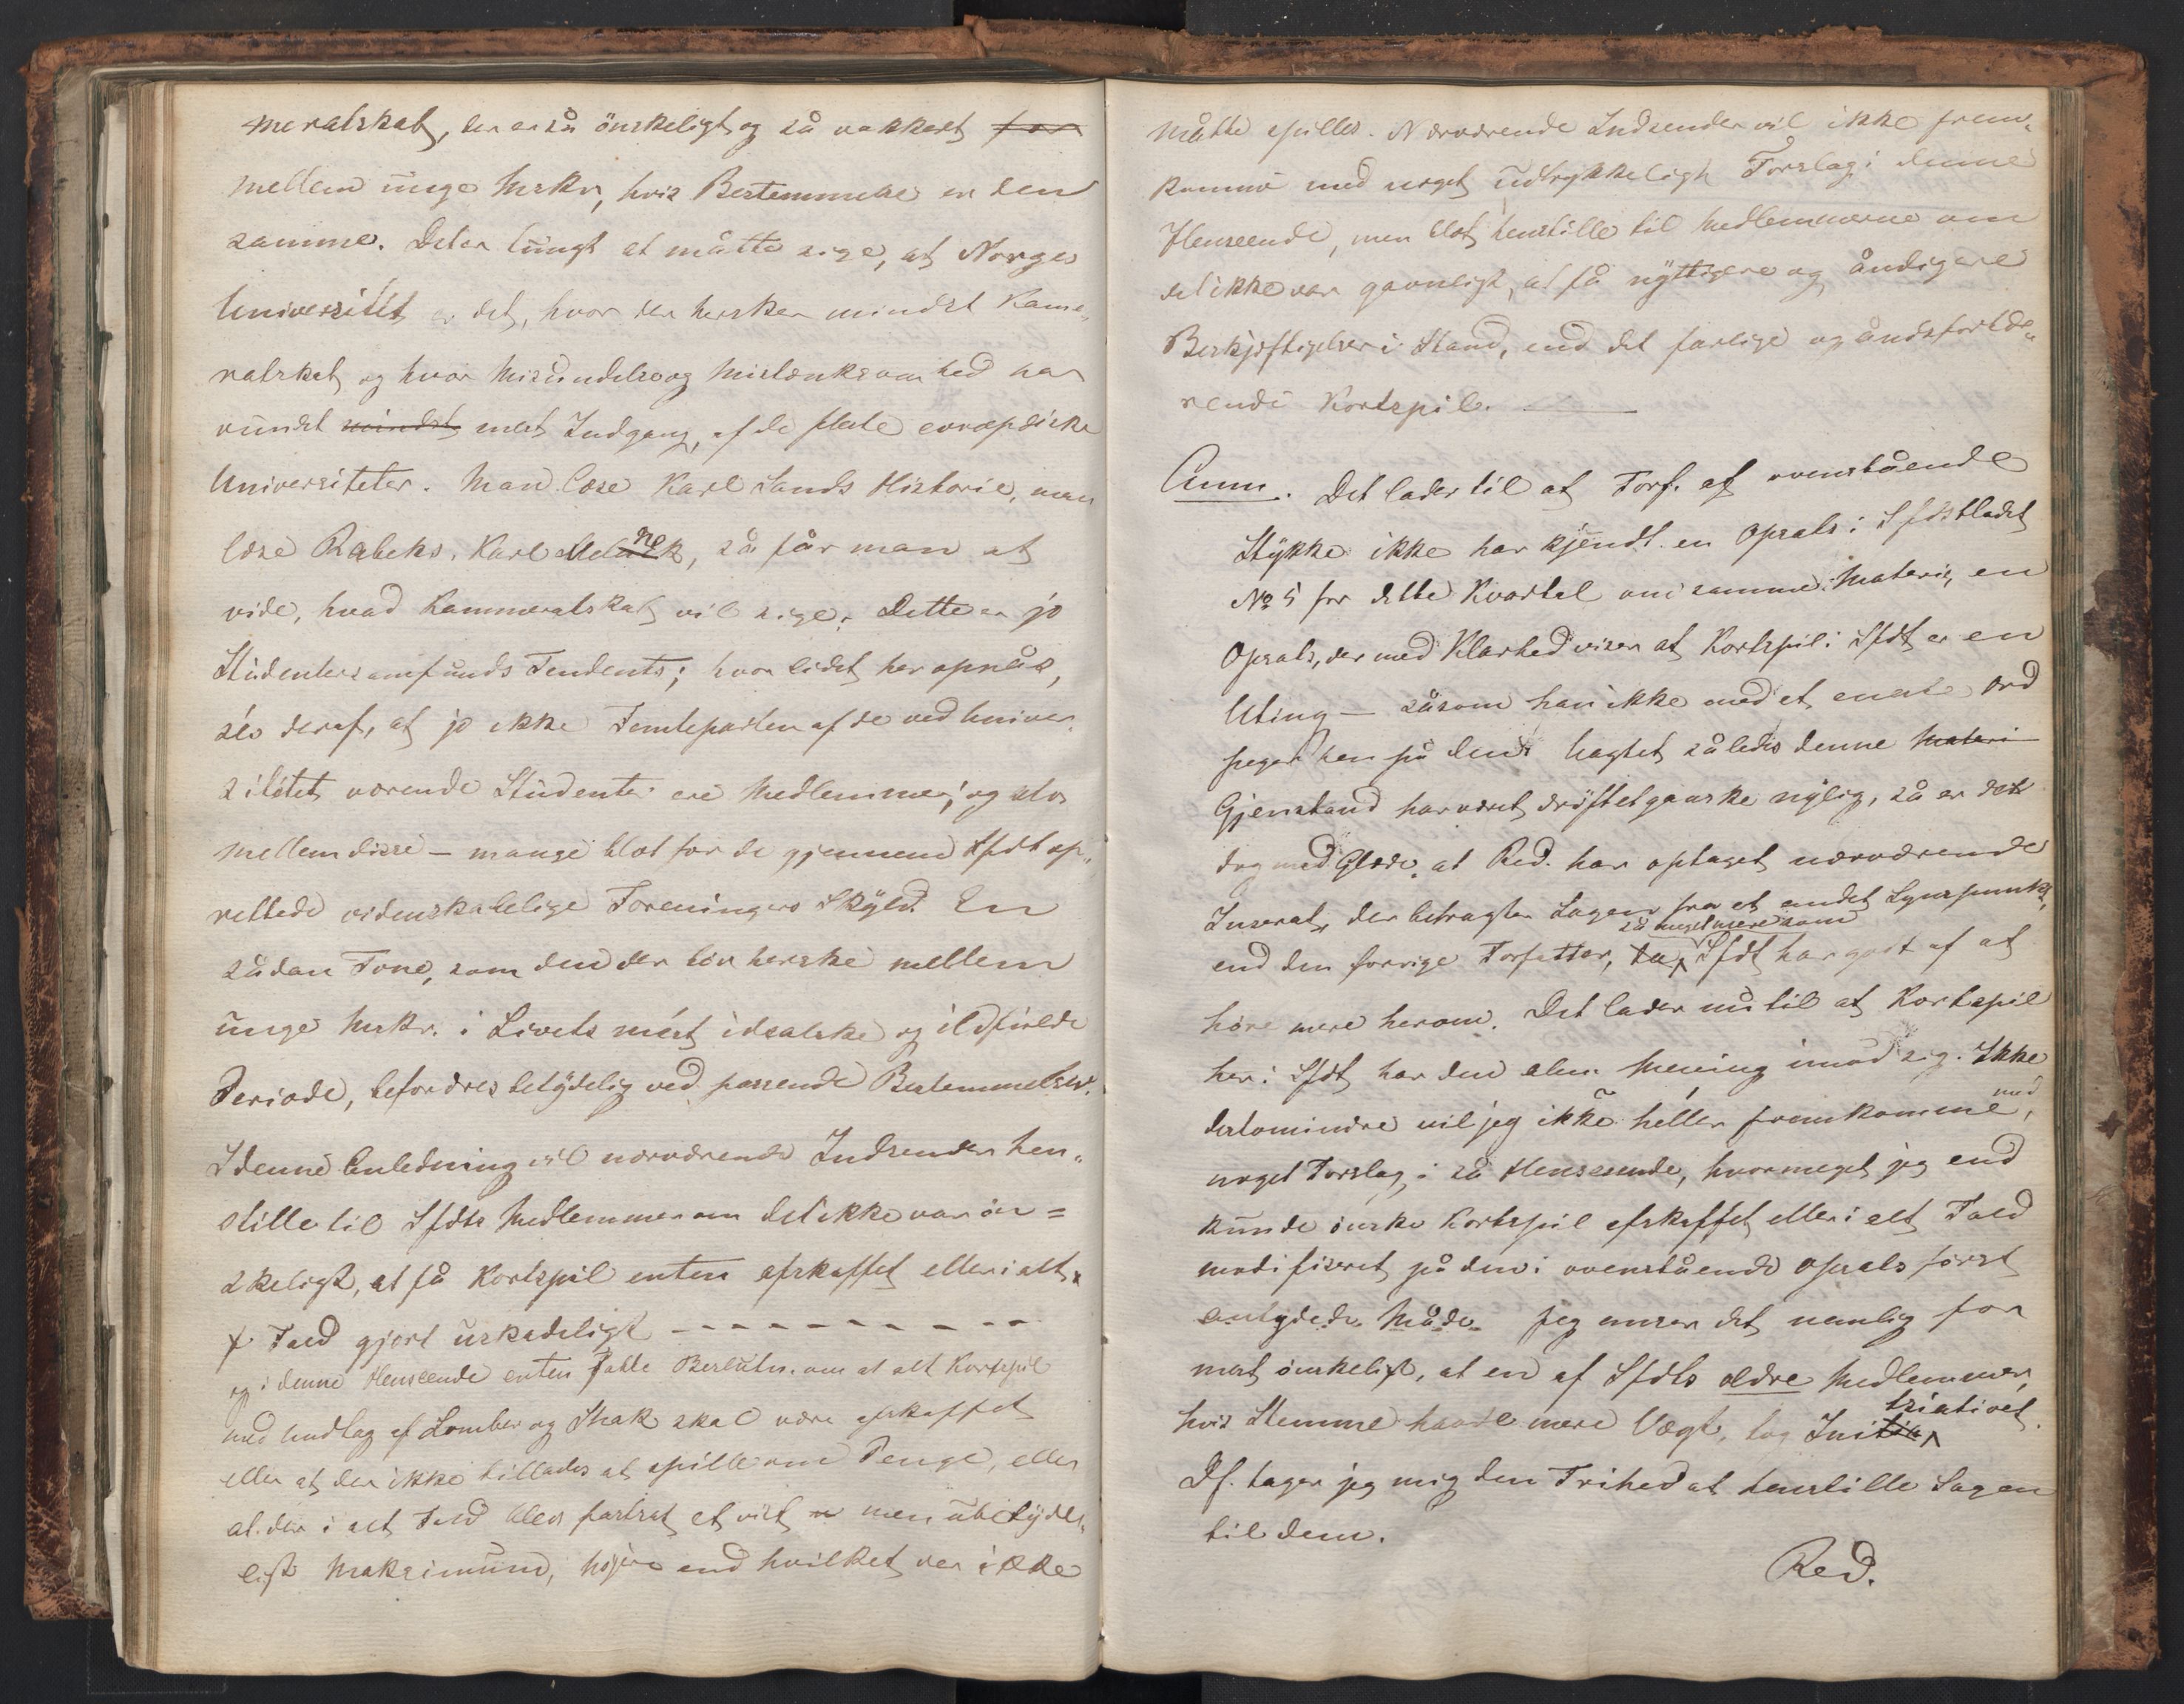 meratskab, der er så önskeligt og så vakkert for
mellem unge Mskr, hvis Bestemmelse er den
samme. Det er tungt at måtte sige, at Norges
Universitét er det, hvor der hersker mindst Kame„
ratskab og hvor Misundelse og Mistænksomhed har
vundet mindst mest Indgang, af de fleste evropæiske
Universiteter. Man læse Karl Sands Historie, man
læse Rabeks, Karl , så får man at
vide, hvad Kammeratskab vil sige. Dette er jo
Studentersamfunds Tendents; hvor lidet her opnåes,
sés deraf, at jo ikke Femteparten af de ved Univer„
sitétet værende Studenter ere Medlemmer; og atter
mellem disse – mange blot for de gjennem Sfdt op„
rettede videnskabelige Foreningers Skyld. En
sådan Tone, som den der bör herske mellem
unge Mskr. i Livets mést idealske og ildfulde
Periode, befordres betydelig ved passende Bestemmelser.
I denne Anledning vil nærværende Indsender hen„
stille til Sfdts Medlemmer om det ikke var ön=
skeligt, at få Kortspil enten afskaffet eller i alt
Fald gjort uskadeligt – – – – – – – – –
og i denne Henseende enten fatte Beslutn. om at alt Kortspil
med Undtag af Lomber og Skak skal være afskaffet
eller at der ikke tillades at spille om Penge, eller
at der i alt Fald blev fastsat et vist men ubetyde„
ligt Maksimum, höjere end hvilket der ikke
måtte spilles. Nærværende Indsender vil ikke frem„
komme med noget udtrykkeligt Forslag i denne
Henseende, men blot henstille til Medlemmerne om
det ikke var gavnligt, at få nyttigere og åndigere
Beskjæftigelser i Stand, end det farlige og åndsfortæ„
rende Kortspil.
Anm. Det lader til at Forf. af ovenstående
Stykke ikke har kjendt en Opsats i Sfdsbladet
No 5 for dette Kvartal om samme Materie, en
Opsats, der med Klarhed viser at Kortspil i Sfdt er en
Uting – såsom han ikke med et eneste Ord
peger hen på den. Uagtet således denne Materi
Gjenstand har været dröftet ganske nylig, så er det
dog med Glæde, at Red. har optaget nærværende
Inserat, der betragter Sagen fra et andet Synspunkt,
så meget mere som
end den forrige Forfatter, da Sfdt har godt af at
höre mere herom. Det lader nu til at Kortspil
her i Sfdt har den alm. Mening imod sig. Ikke
destomindre vil jeg ikke héller fremkomme med
noget Forslag i så Henseende, hvormeget jeg end
kunde önske Kortspil afskaffet eller i alt Fald
modifiseret på den i ovenstående Opsats först
antydede Måde. Jeg anser det nemlig for
mest önskeligt, at en af Sfdts ældre Medlemmer,
hvis Stemme havde mere Vægt, tog Initia
tsiativet.
Df. tager jeg mig den Frihed at henstille Sagen
til dem.
Red.